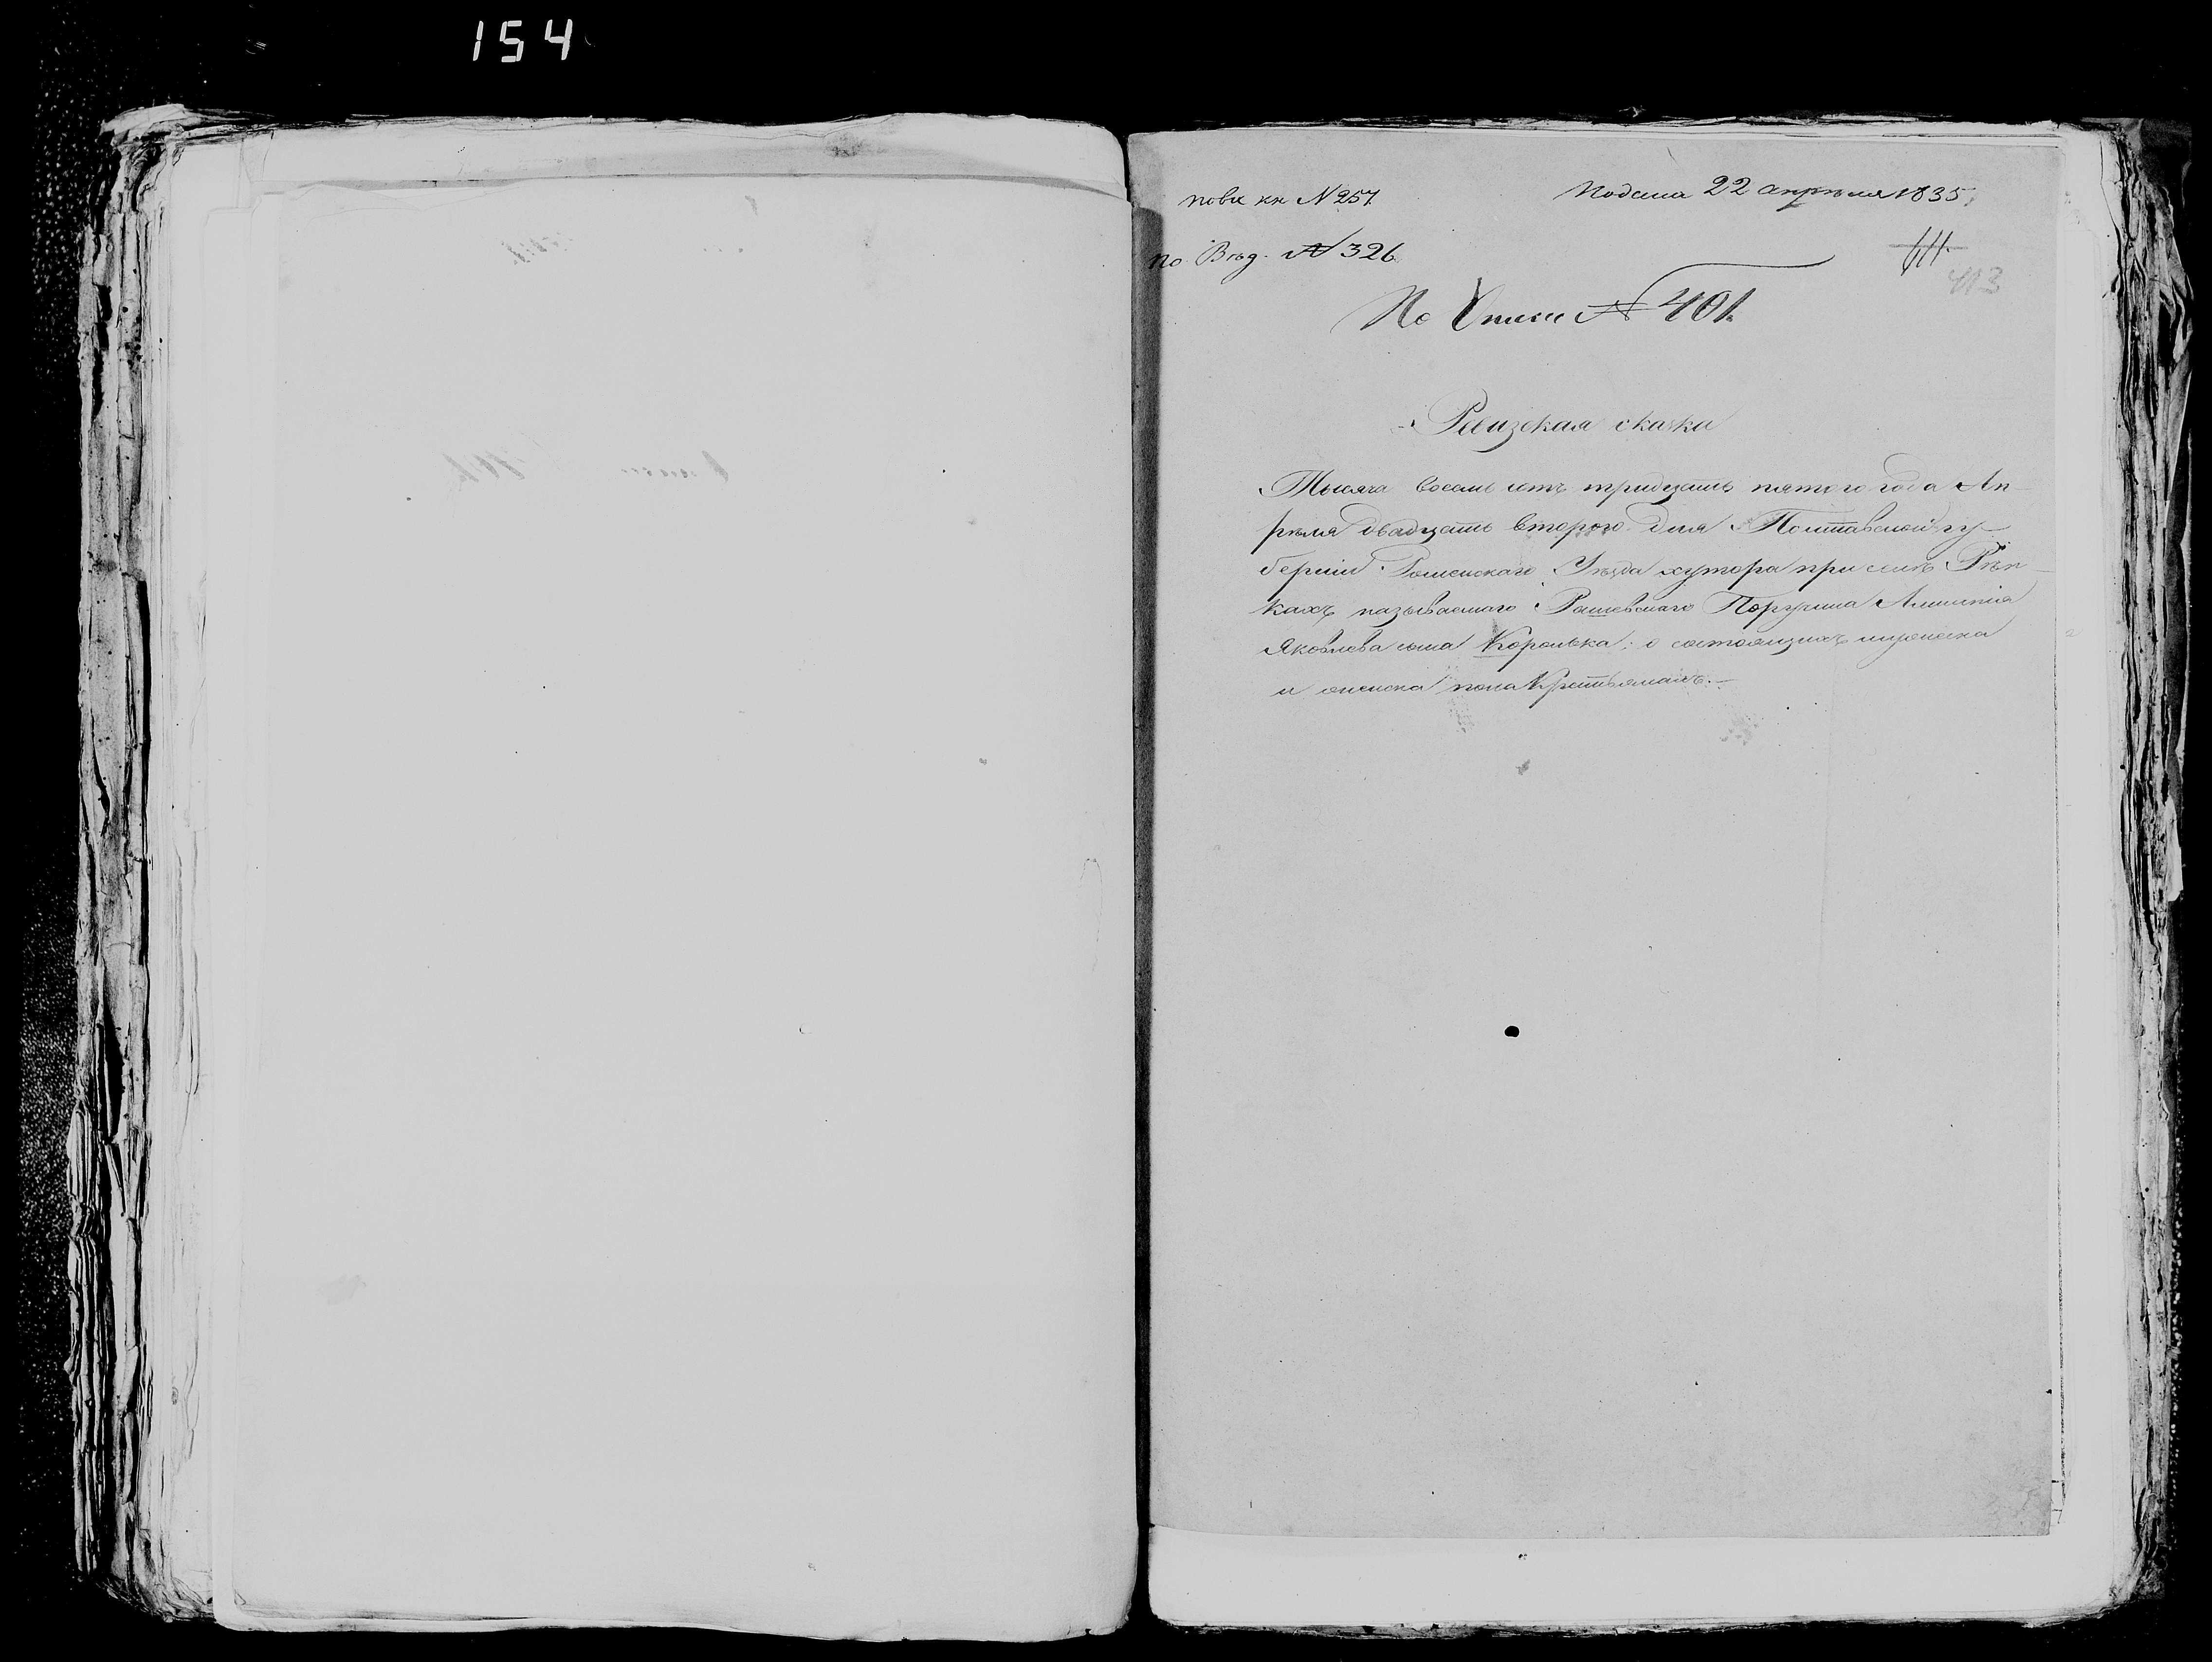 154
по вх кн N 257
Подана 22 апреля 1835
по Вѣд. № 326
413
По Описи № 401.
Ревизская сказка
Тысяча восемь сотъ тридцать пятого года Ап-
рѣля двадцать второго дня Полтавской гу-
берніи Роменскаго Уѣзда хутора при селѣ Рѣп-
кахъ называемаго Рашевскаго Поручика
Яковлева сына Королька, о состоящихъ мужеска
и женска пола Крестьянахъ.